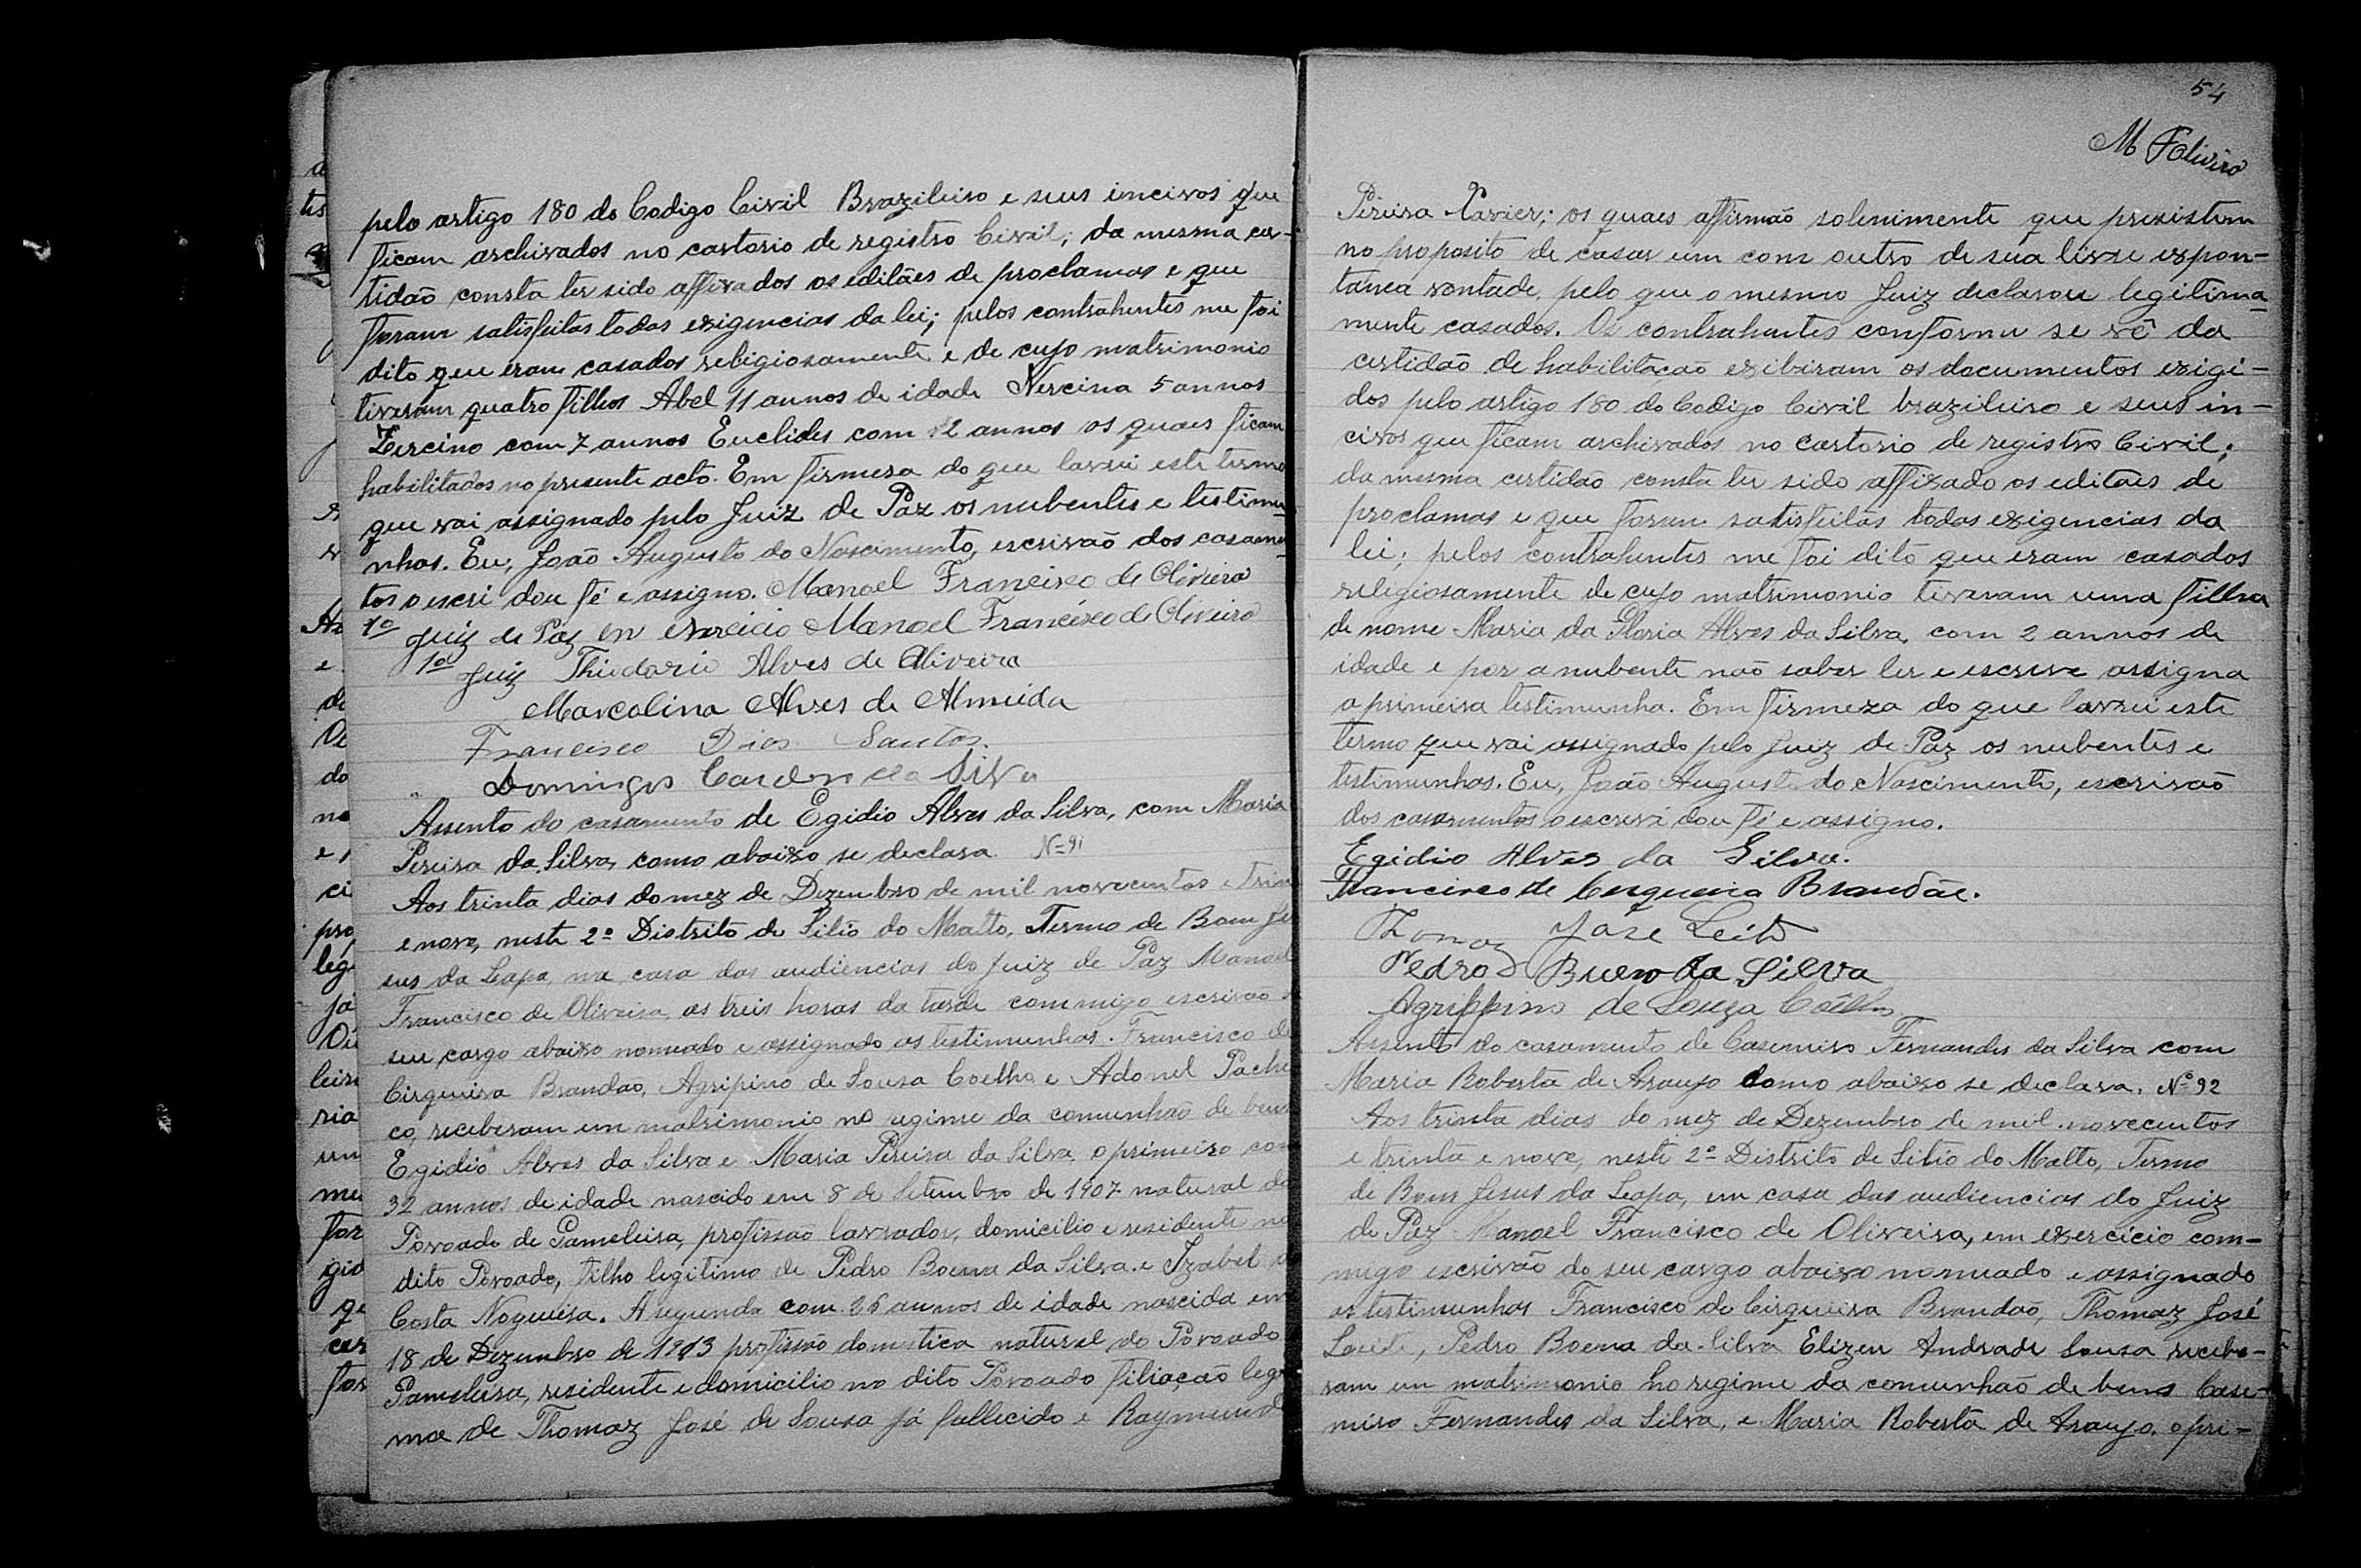 pelo artigo 180 do Codigo Civil Brazileiro e seus incivos que
ficam archivados no cartorio de registro Civil; da mesma cer-
tidão consta ter sido affixados os editães de proclamas e que
foram satisfeitas todas exigencias da lei; pelos contrahentes me foi
dito que eram casados religiosamente e de cujo matrimonio
tiveram quatro filhos Abel 11 annos de idade Nercina 5 annos
Zercino com 7 annos Euclides com 2 annos os quaes ficam
habilitados no presente acto. Em firmesa do que lavrei este termo
que vai assignado pelo Juiz de Paz os nubentes e testimu-
nhas. Eu, João Augusto do Nascimento, escrivão dos casamen-
tos o escri dou fé e assigno. Manoel Francisco de Oliveira
1º Juiz de Paz en exercicio Manoel Francisco de Oliveira
1º Juiz Thiodorio Alves de Oliveira
Marcolina Alves de Almeida
Francisco Dias Santos.
Domingos da Silva
Assento do casamento de Egidio Alves da Silva, com Maria
Pereira da Silva, como abaixo se declara. Nº 91
Aos trinta dias do mez de Dezembro de mil novecentos e trin
e nove, neste 2º Distrito de Sitio do Matto, Termo de Bom Je
sus da Lapa, na casa das audiencias do Juiz de Paz Manoel
Francisco de Oliveira, as treis horas da tarde commigo escrivão
seu cargo abaixo nomeado e assignado as testimunhas. Francisco de
Cirqueira Brandão, Agripino de Sousa Coelho e Adonel Pache
co, receberam em matrimonio no regime da comunhão de bens
Egidio Alves da Silva e Maria Pereira da Silva, o primeiro com
32 annos de idade nascido em 8 de Setembro de 1907 natural do
Povoado de Gameleira, profissão lavrador, domicilio e residente no
dito Povoado, filho legitimo de Pedro Boena da Silva e Izabel
Costa Nogueira. A segunda com 26 annos de idade nascida em
18 de Dezembro de 1913 profissão domestica natural do Povoado
Gameleira, residente e domicilio no dito Povoado filiação legi
ma de Thomaz José de Sousa já fallecido e Raymund
54
M F Oliveira
Pereira Xavier; os quaes affirmão solenimente que prexistem
no proposito de casar um com outro de sua livre expon-
tanea vontade, pelo que o mesmo Juiz declarou legitima-
mente casados. Os contrahentes conforme se vê da
certidão de habilitação exibiram os documentos exigi-
dos pelo artigo 180 do Codigo Civil brazileiro e seus in-
civos que ficam archivados no cartorio de registro Civil;
da mesma certidão consta ter sido affixado os editães de
proclamas e que foram satisfeitas todas exigencias da
lei; pelos contrahentes me foi dito que eram casados
religiosamente de cujo matrimonio tiveram uma filha
de nome Maria da Gloria Alves da Silva, com 2 annos de
idade e por a nubente não saber ler e escreve assigna
a primeira testimunha. Em firmeza do que lavrei este
termo que vai assignado pelo Juiz de Paz os nubentes e
testimunhas. Eu, João Augusto do Nascimento, escrivão
dos casamentos o escrevi dou fé e assigno.
Egidio Alves da Silva.
Francisco de Cerqueira Brandão.
Thomaz José Leite
Pedro Bueno da Silva
Agrippino de Souza Coelho
Assento do casamento de Casemiro Fernandes da Silva com
Maria Roberta de Araujo como abaixo se declara. Nº 92
Aos trinta dias do mez de Dezembro de mil novecentos
e trinta e nove, neste 2º Distrito de Sitio do Matto, Termo
de Bom Jesus da Lapa, em casa das audiencias do Juiz
de Paz Manoel Francisco de Oliveira, em exercicio com-
migo escrivão do seu cargo abaixo nomeado e assignado
as testimunhas Francisco de Cirqueira Brandão, Thomaz José
Leite, Pedro Boena da Silva Elizeu Andrade Sousa recebe-
ram em matrimonio no regime da comunhão de bens Case-
miro Fernandes da Silva, e Maria Roberta de Araujo. o pri-